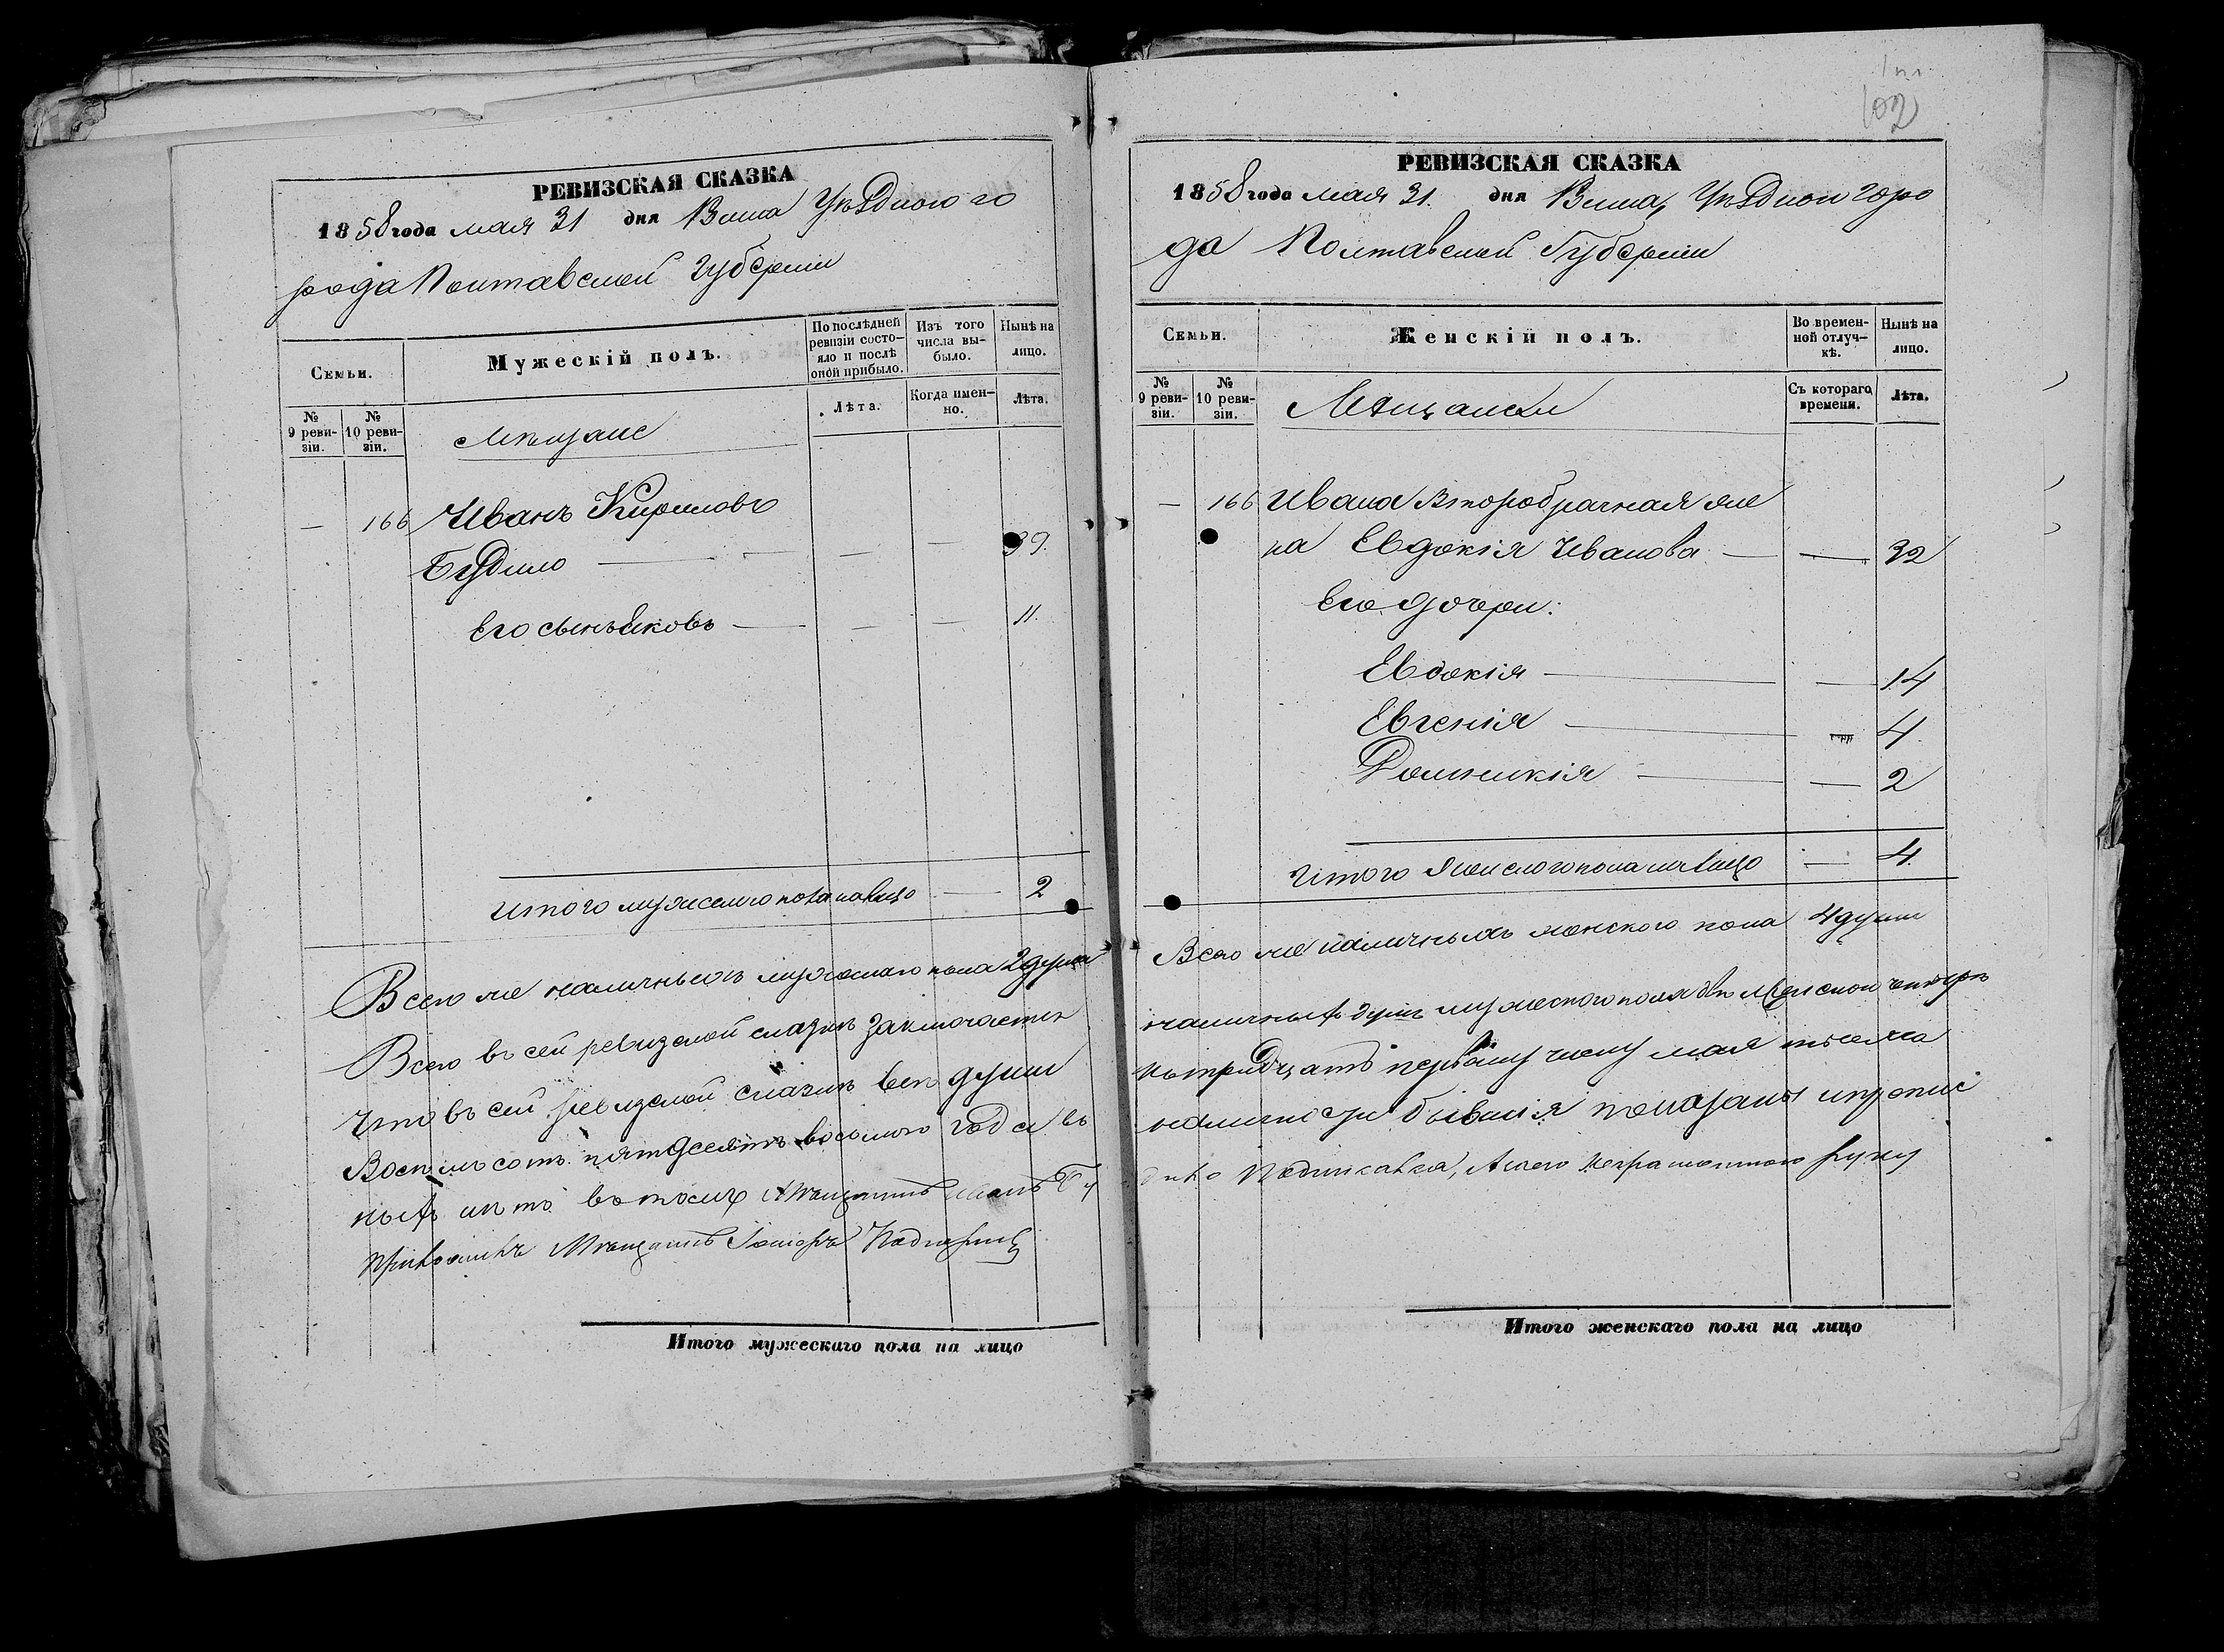 РЕВИЗСКАЯ СКАЗКА
1858 года мая 31 дня Уѣзднаго го
рода Полтавской губерніи
Семьи.
Мужескій полъ.
По послѣдней ревизіи состояло и послѣ оной прибыло.
Изъ того числа выбыло.
Нынѣ на лицо.
№ 9 ревизіи.
№ 10 ревизіи.
Мѣщане
Лѣта.
Когда именно.
Лѣта.
— 166 Иванъ Кириловъ
Будило — — — 39.
Его сынъ Яковъ — — — 11.
Итого мужескаго пола на лицо — 2
Всего же наличныхъ мужескаго пола 2 души
Всего въ сей ревизской сказкѣ заключается
Что въ сей ревизской сказкѣ всѣ души
Восемьсотъ пятдесятъ восьмого года въ
ныхъ нѣтъ въ томъ Мѣщанинъ Иванъ Бу
Мѣщанинъ
Итого мужескаго пола на лицо
1 пл.
102
РЕВИЗСКАЯ СКАЗКА
1858 года мая 31. дня Уѣзднаго горо
да Полтавской Губерніи
Семьи.
Женскій полъ.
Во временной отлучкѣ.
Нынѣ на лицо.
№ 9 ревизіи.
№ 10 ревизіи.
Мѣщанки
Съ котораго времени.
Лѣта.
— 166 Ивана второбрачная же
на Евдокія Иванова — — 32
Его дочери:
Евдокія — — 14
Евгенія — — 4
Домникія — — 2
Итого женскаго пола на лицо — 4
Всего же наличныхъ женского пола 4 души
наличныхъ душъ мужеского пола двѣ женской четыре
къ тридцать первому числу мая мѣсяца
наличности бывшія показаны и прописн
дило а его неграмотного руку
Итого женскаго пола на лицо